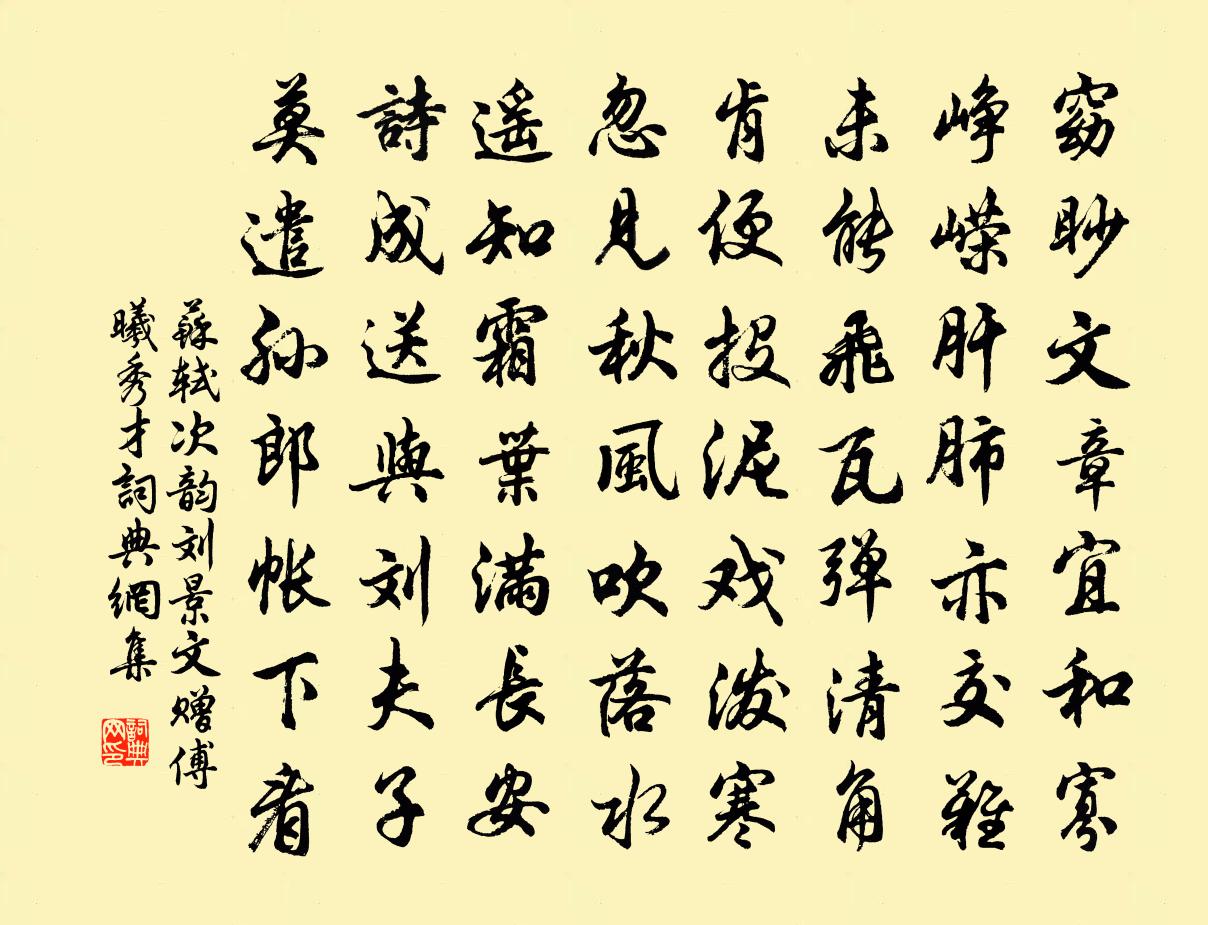 窈眇文章宜和寡
峥嵘肝肺亦交難
未能飛瓦弹清角
肯便投泥戏泼寒
忽見秋風吹落水
遥知霜葉满長安
詩成送與刘夫子
莫遣孙郎帐下看
蘇轼次韵刘景文赠傅
曦秀才詞典網集
詞典
网印